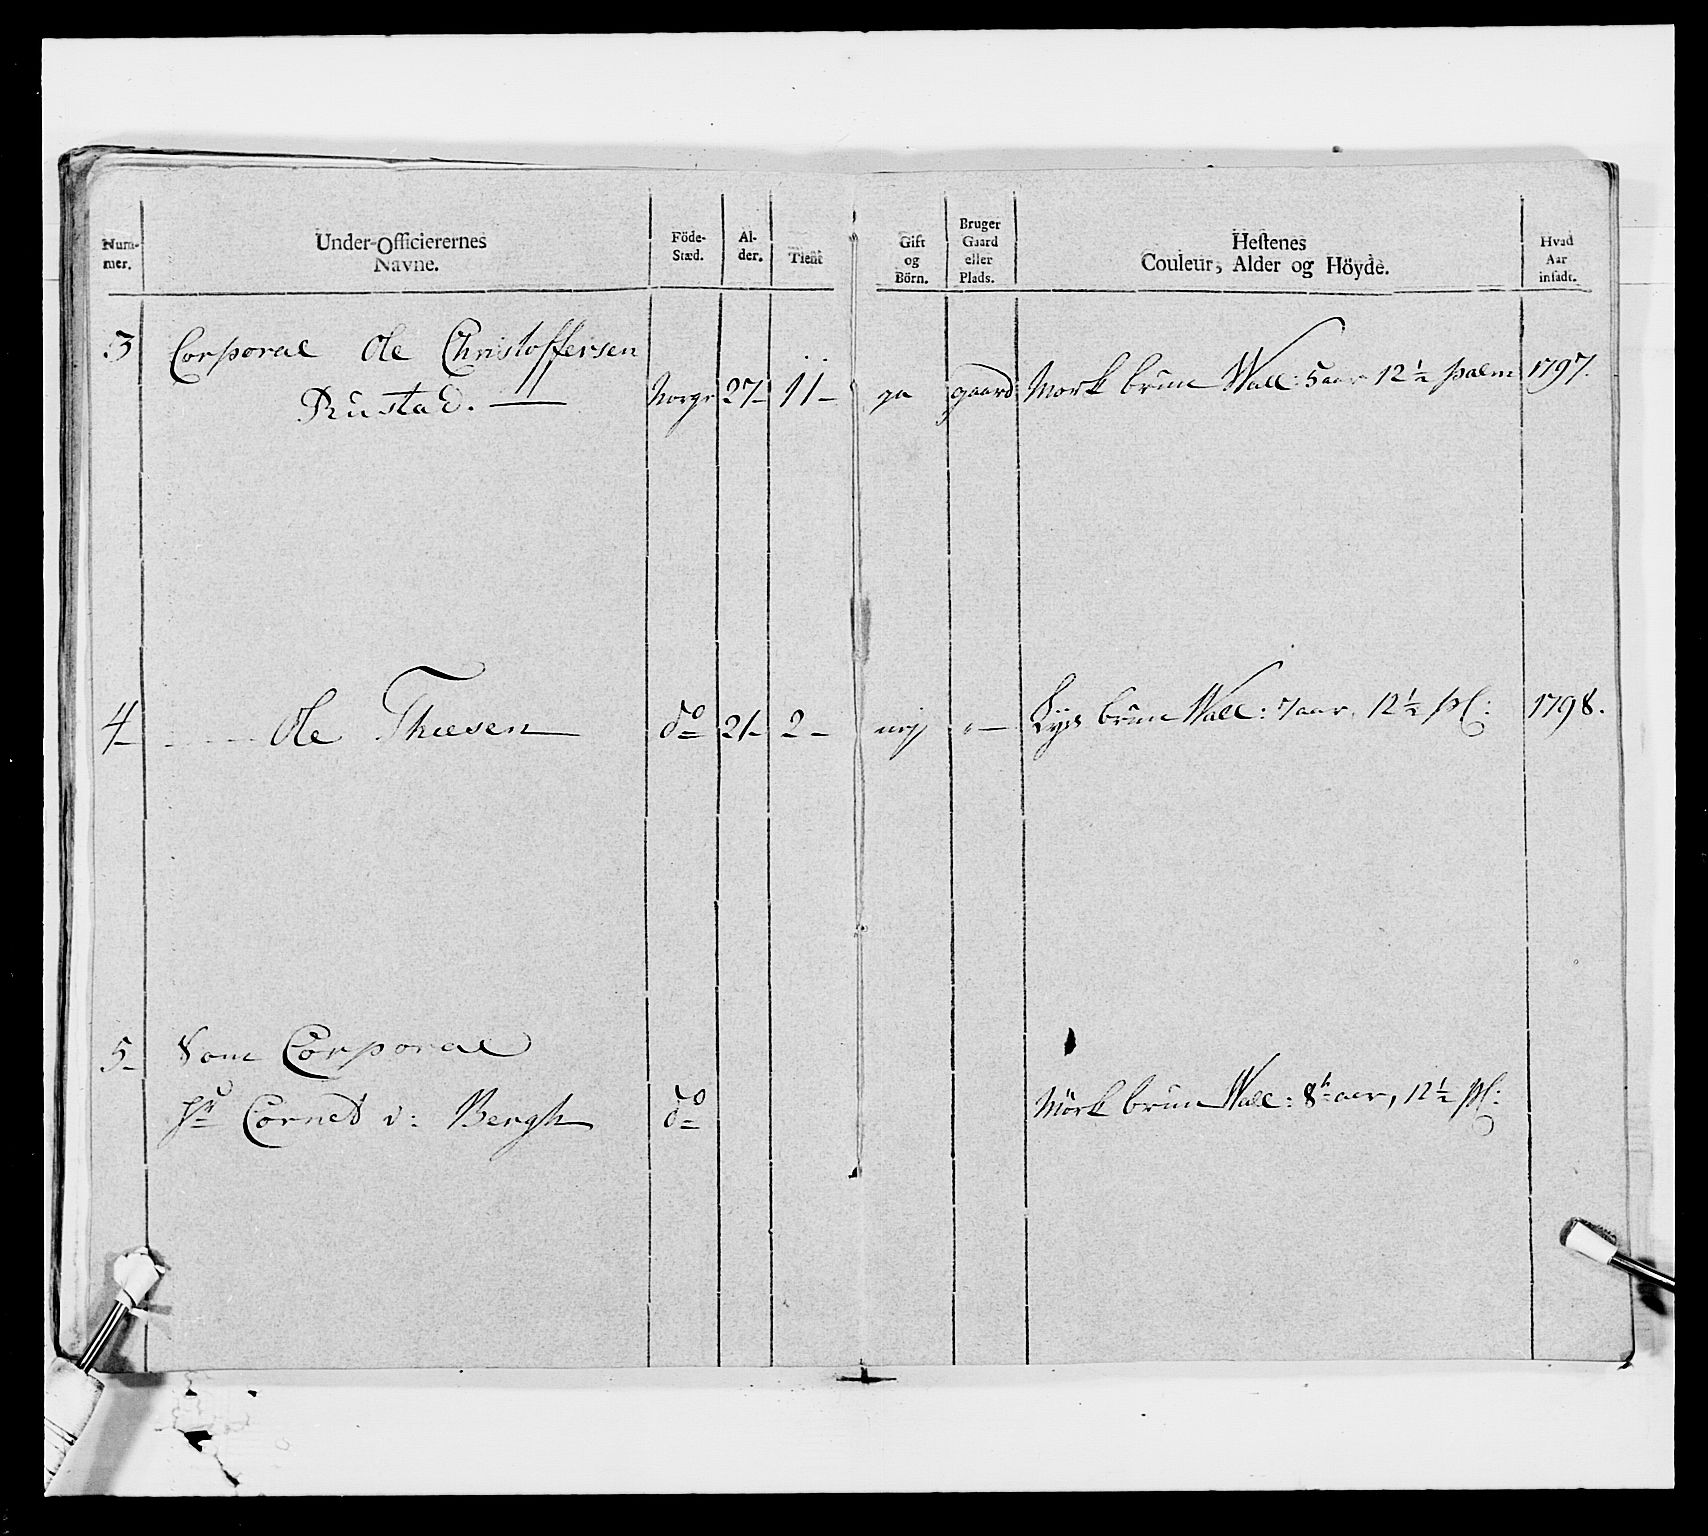 Num-
mer.
Under-Officierernes
Navne.
Föde-
Stæd.
Al-
der.
Tient
Gift
og
Börn.
Bruger
Gaard
eller
Plads.
Hestenes
Couleur, Alder og Höyde.
Hvad
Aar
insadt.
3 Corporal Ole Christoffersen
Rustad. — Norge 27- 11- ja gaard Mörk brun Wall: 5 aar 12 ½ palm 1797.
4- Ole Thiesen do 21- 2- nej „— Lys brun Wall: 7 aar, 12 ½ pl: 1798.
5- Som Corporal
Hr Cornet v: Bergh do Mörk brun Wall: 8 aar, 12 ½ pl: